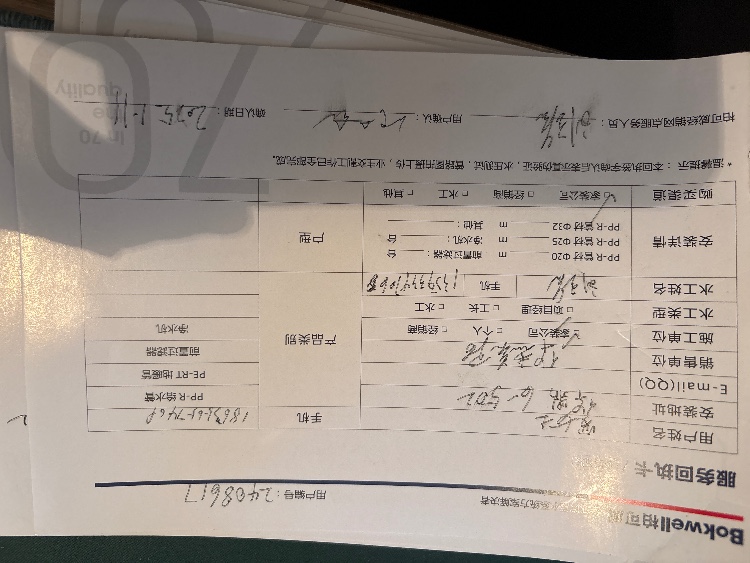 Bokwell柏可
系统方案解决者
用户编号：2408617
服务回执卡
用户姓名
手机
安装地址 6-502
PP-R 给水管
E-mail(QQ)
PE-RT 地暖管
销售单位
前置过滤器
施工单位 家装公司 个人 经销商
产品类别
净水机
水工类型 项目经理 工长 水工
水工姓名
手机
安装详情
PP-R 管材 Φ20 m 前置过滤器： 台
PP-R 管材 Φ25 m 净水机： 台
PP-R 管材 Φ32 m 其他：
户型
购买渠道 家装公司 经销商 水工 其他
* 温馨提示：本回执签字确认后表示真伪验证，水压测试，管路图拍摄上传，业主交割工作已全部完成。
柏可威经销网点服务人员：
用户确认：
确认日期：2025.1.11
In 70
the
quality
70